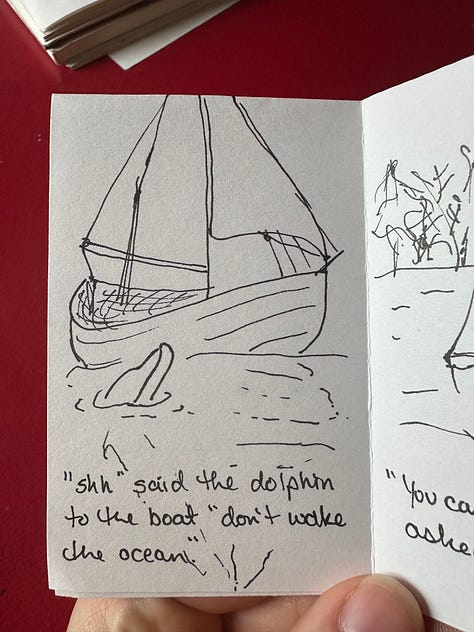 "shh" said the dolphin
to the boat "don't wake
the ocean."
"You ca
aske